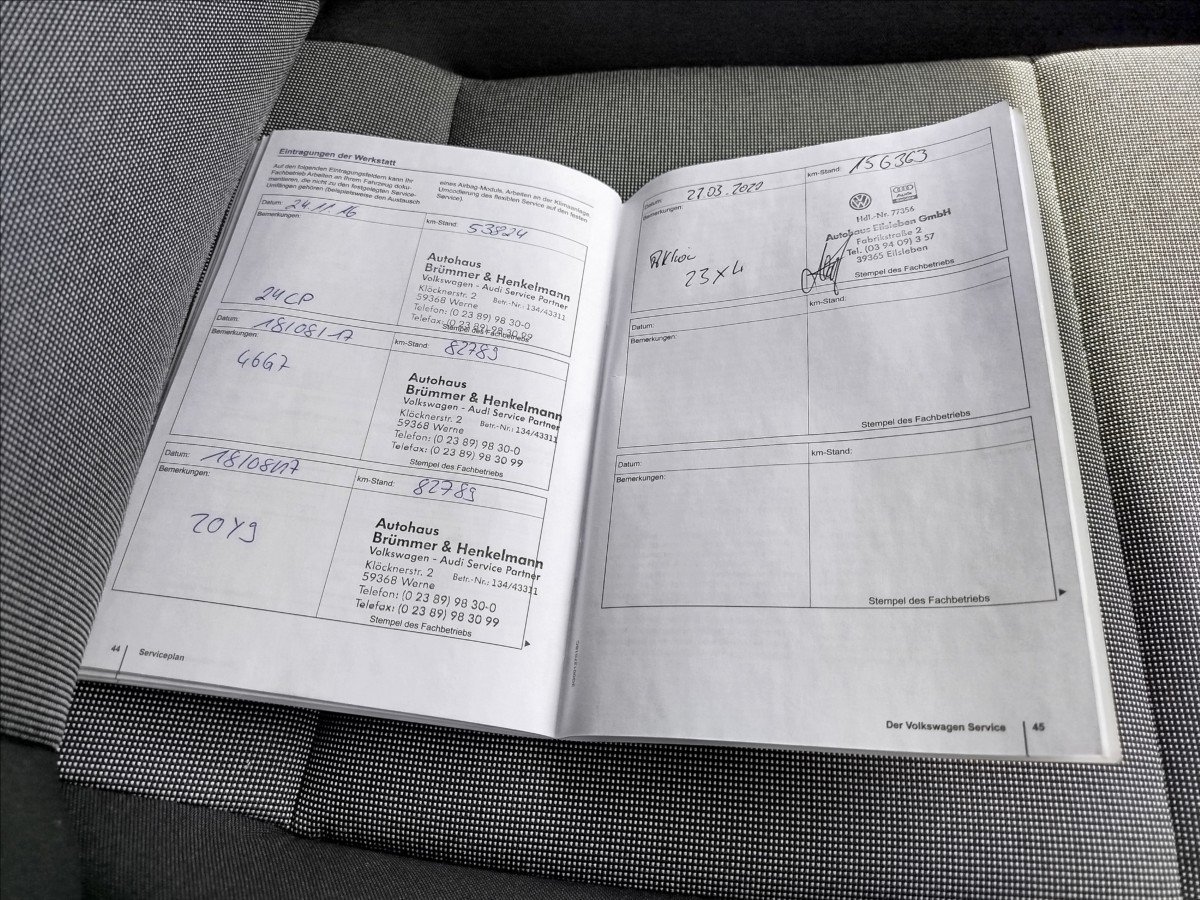 Eintragungen der Werkstatt
Auf den folgenden Eintragungsfeldern kann Ihr
Fachbetrieb Arbeiten an Ihrem Fahrzeug doku-
mentieren, die nicht zu den festgelegten Service-
Umfängen gehören (beispielsweise den Austausch
eines Airbag-Moduls, Arbeiten an der Klimaanlage,
Umcodierung des flexiblen Service auf den festen
Service).
Datum: 24.11.16
km-Stand: 53824
Bemerkungen:
24CP
Autohaus
Brümmer & Henkelmann
Volkswagen - Audi Service Partner
Klöcknerstr. 2
59368 Werne Betr.-Nr.: 134/43311
Telefon: (0 23 89) 98 30-0
Telefax: (0 23 89) 98 30 99
Stempel des Fachbetriebs
Datum: 18/08/17
km-Stand: 82789
Bemerkungen:
46G7
Autohaus
Brümmer & Henkelmann
Volkswagen - Audi Service Partner
Klöcknerstr. 2
59368 Werne Betr.-Nr.: 134/43311
Telefon: (0 23 89) 98 30-0
Telefax: (0 23 89) 98 30 99
Stempel des Fachbetriebs
Datum: 18/08/17
km-Stand: 82789
Bemerkungen:
20Y9
Autohaus
Brümmer & Henkelmann
Volkswagen - Audi Service Partner
Klöcknerstr. 2
59368 Werne Betr.-Nr.: 134/43311
Telefon: (0 23 89) 98 30-0
Telefax: (0 23 89) 98 30 99
Stempel des Fachbetriebs
44 Serviceplan
Datum: 27.03.2020
km-Stand: 156363
Bemerkungen:
23X4
Audi
Hdl.-Nr. 77356
Autohaus Eilsleben GmbH
Fabrikstraße 2
Tel. (03 94 09) 3 57
39365 Eilsleben
Stempel des Fachbetriebs
Datum:
km-Stand:
Bemerkungen:
Stempel des Fachbetriebs
Datum:
km-Stand:
Bemerkungen:
Stempel des Fachbetriebs
Der Volkswagen Service 45